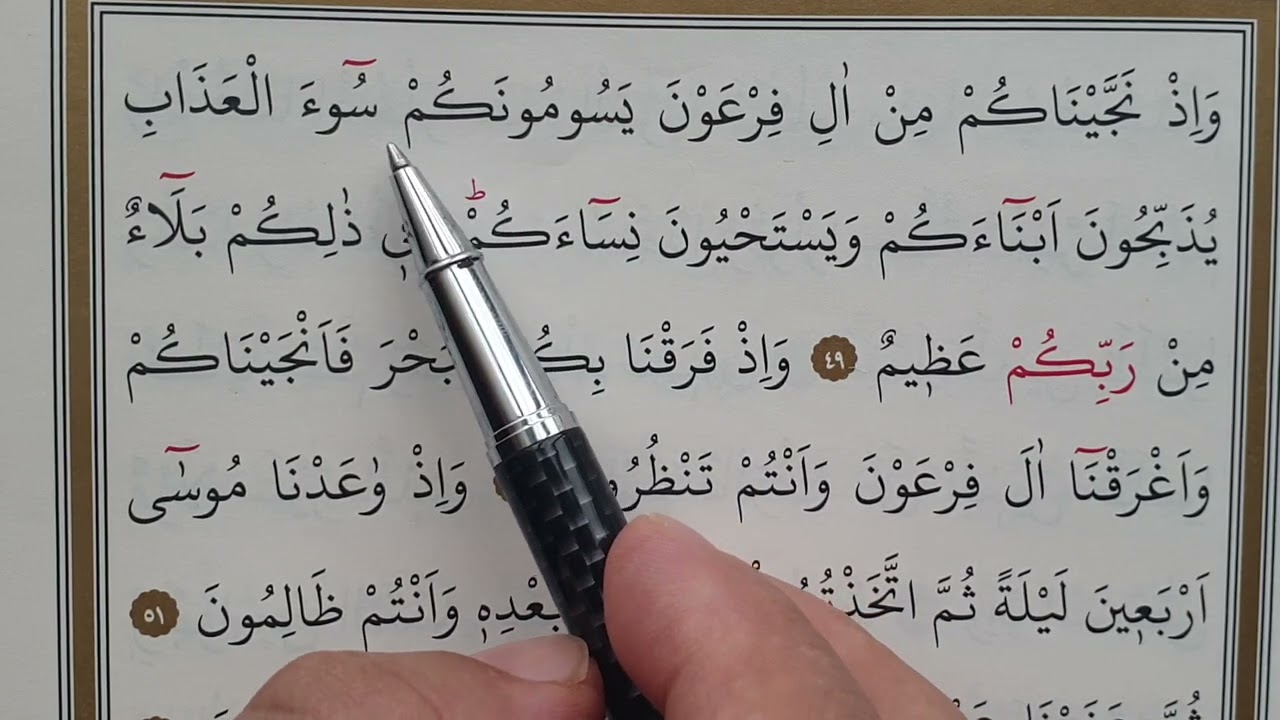 وَاِذْ نَجَّيْنَاكُمْ مِنْ اٰلِ فِرْعَوْنَ يَسُومُونَكُمْ سُٓوءَ الْعَذَابِ
يُذَبِّحُونَ اَبْنَٓاءَكُمْ وَيَسْتَحْيُونَ نِسَٓاءَكُمْۜ ذٰلِكُمْ بَلَٓاءٌ
مِنْ رَبِّكُمْ عَظ۪يمٌ ﴿٤٩﴾ وَاِذْ فَرَقْنَا فَاَنْجَيْنَاكُمْ
وَاَغْرَقْنَٓا اٰلَ فِرْعَوْنَ وَاَنْتُمْ وَاِذْ وٰعَدْنَا مُوسٰٓى
اَرْبَع۪ينَ لَيْلَةً ثُمَّ وَاَنْتُمْ ظَالِمُونَ ﴿٥١﴾